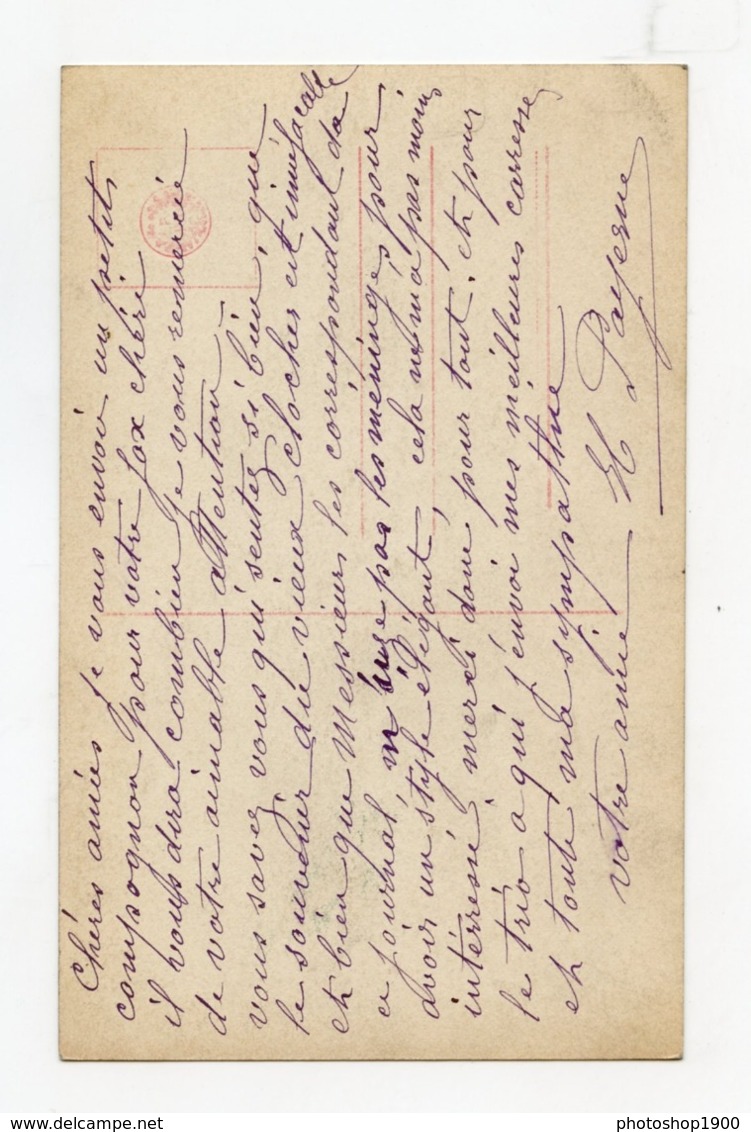 Chères amies je vous envoi un petit
compognon pour votre fox chéri
il vous dira combien je vous remercie
de votre aimable attention –
vous savez vous qui sentez si bien, que
le souvenir du vieux clocher est innefacable
et bien que Messieurs les correspondant da
ce journal, n'use pas les méninges pour
avoir un style élégant, cela ne m'a pas moins
intérressé, merci donc pour tout. et pour
le trio a qui j'envoi mes meilleures carresses
et toute ma sympathie
votre amie H Payerne
www.delcampe.net
photoshop1900